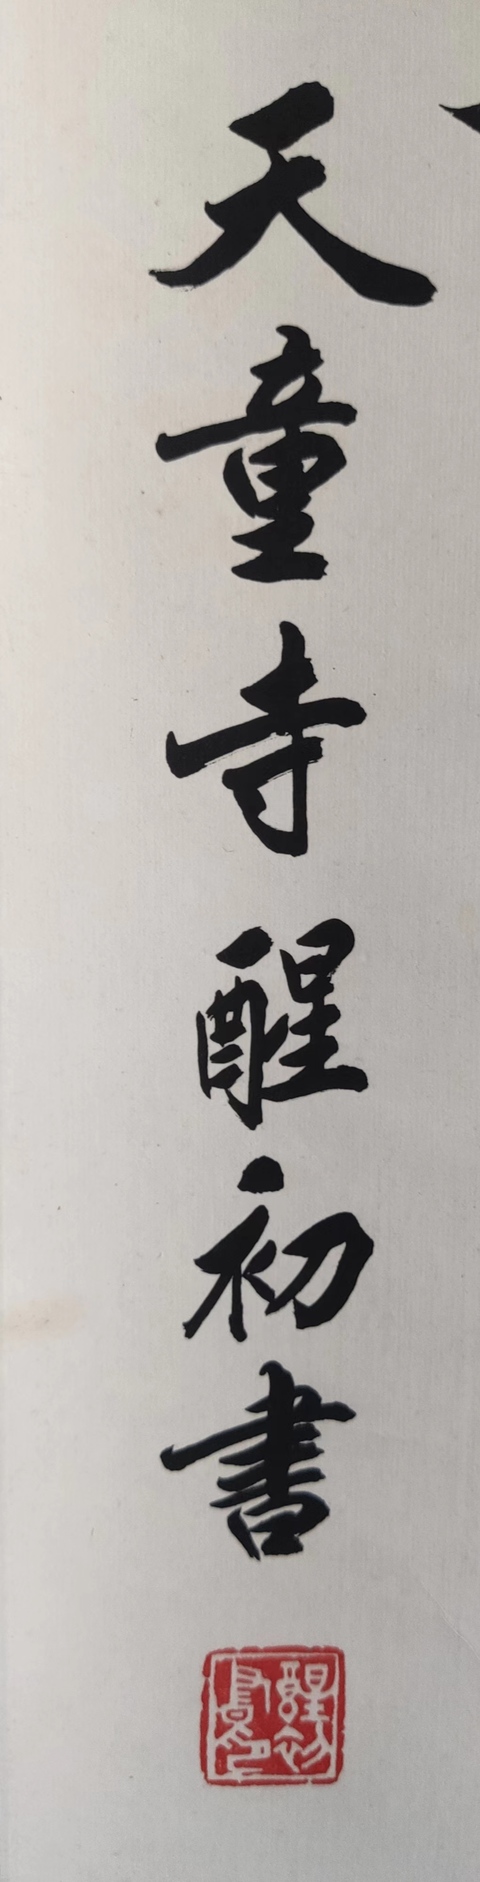 天童寺醒初書
醒初